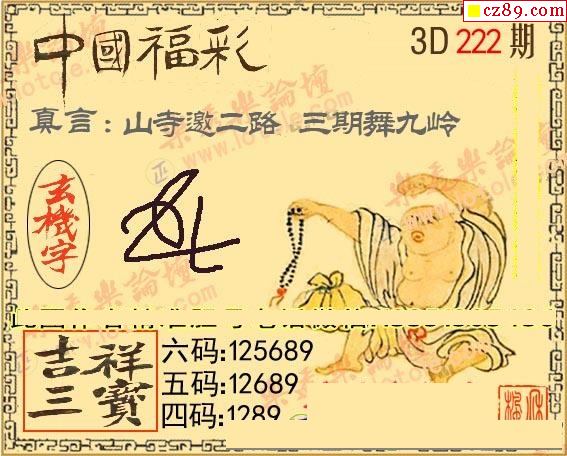 cz89.com
中國福彩
3D 222 期
真言：山寺邀二路 三期舞九岭
玄機字
吉祥三寶
六码:125689
五码:12689
四码:1289